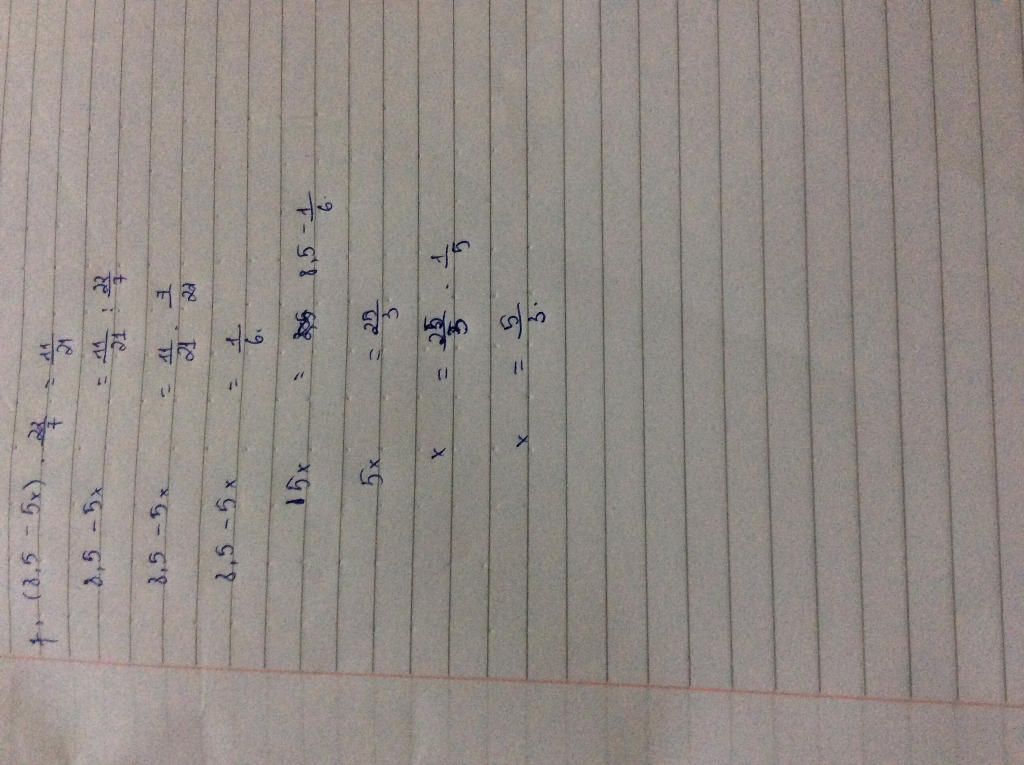 f, (8,5 - 5x) . 22/7 = 11/21
8,5 - 5x = 11/21 : 22/7
8,5 - 5x = 11/21 . 7/22
8,5 - 5x = 1/6.
5x = 8,5 - 1/6.
5x = 25/3
x = 25/3 . 1/5
x = 5/3.